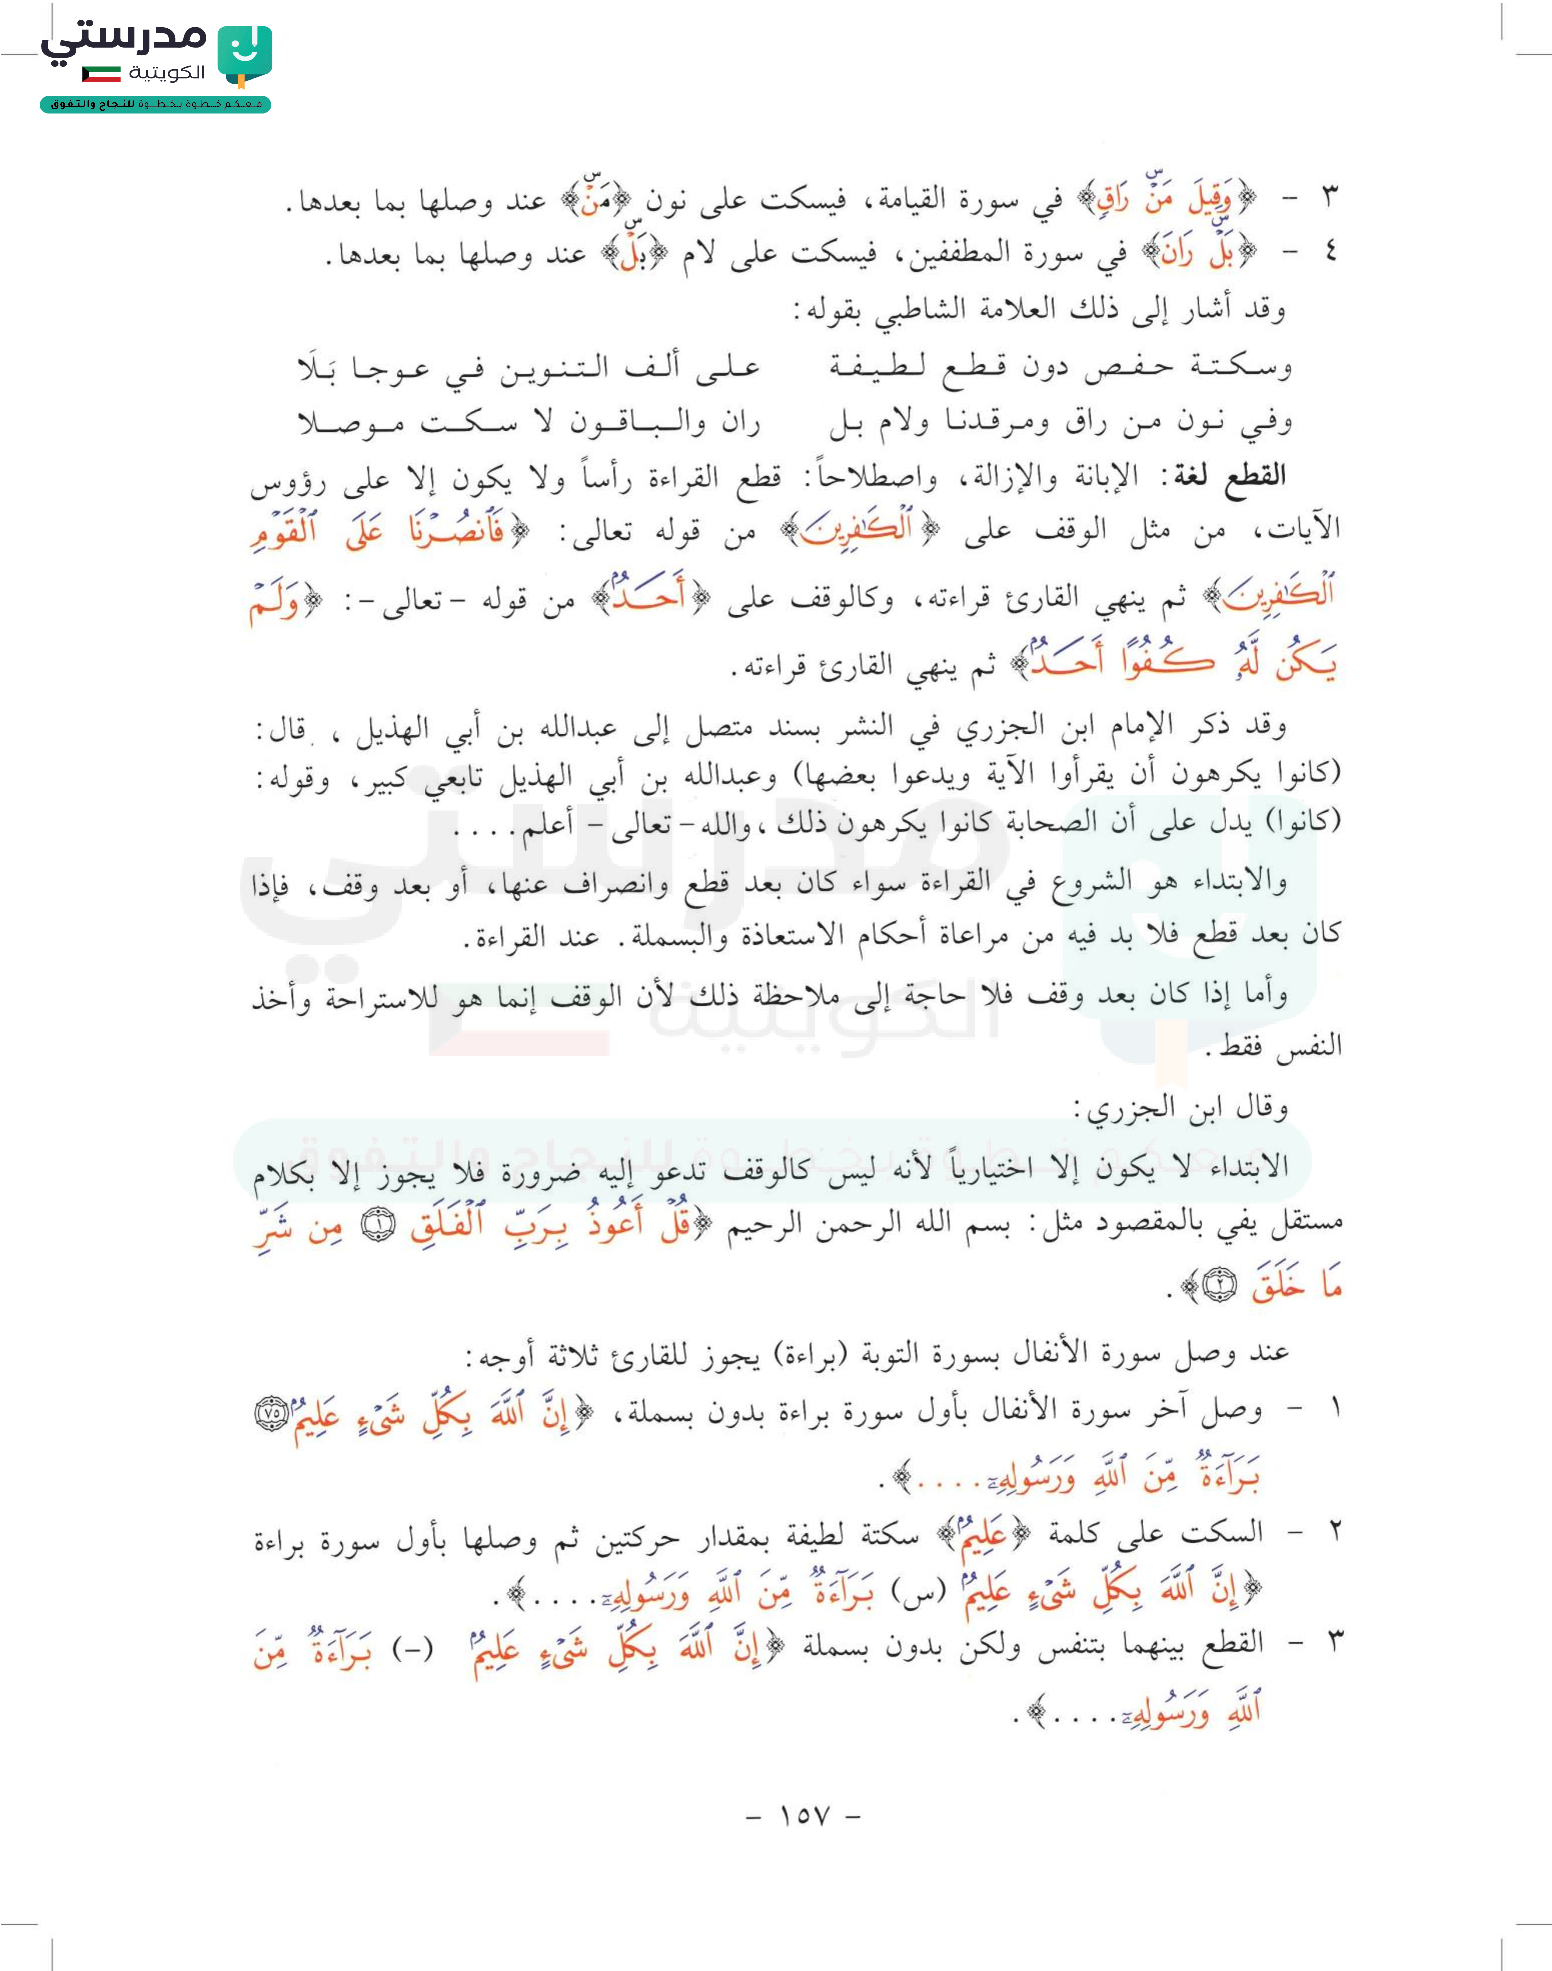 مدرستي
الكويتية
معكم خطوة بخطوة للنجاح والتفوق
٣ - ﴿وَقِيلَ مَنْۜ رَاقٍ﴾ في سورة القيامة، فيسكت على نون ﴿مَنْۜ﴾ عند وصلها بما بعدها.
٤ - ﴿بَلْۜ رَانَ﴾ في سورة المطففين، فيسكت على لام ﴿بَلْۜ﴾ عند وصلها بما بعدها.
وقد أشار إلى ذلك العلامة الشاطبي بقوله:
وسكتة حفص دون قطع لطيفة على ألف التنوين في عوجا بَلَا
وفي نون من راق ومرقدنا ولام بل ران والباقون لا سكت موصلا
القطع لغة: الإبانة والإزالة، واصطلاحاً: قطع القراءة رأساً ولا يكون إلا على رؤوس
الآيات، من مثل الوقف على ﴿ٱلْكَٰفِرِينَ﴾ من قوله تعالى: ﴿فَٱنصُرْنَا عَلَى ٱلْقَوْمِ
ٱلْكَٰفِرِينَ﴾ ثم ينهي القارئ قراءته، وكالوقف على ﴿أَحَدٌۢ﴾ من قوله -تعالى-: ﴿وَلَمْ
يَكُن لَّهُۥ كُفُوًا أَحَدٌۢ﴾ ثم ينهي القارئ قراءته.
وقد ذكر الإمام ابن الجزري في النشر بسند متصل إلى عبدالله بن أبي الهذيل ، قال:
(كانوا يكرهون أن يقرأوا الآية ويدعوا بعضها) وعبدالله بن أبي الهذيل تابعي كبير، وقوله:
(كانوا) يدل على أن الصحابة كانوا يكرهون ذلك ،والله- تعالى- أعلم....
والابتداء هو الشروع في القراءة سواء كان بعد قطع وانصراف عنها، أو بعد وقف، فإذا
كان بعد قطع فلا بد فيه من مراعاة أحكام الاستعاذة والبسملة. عند القراءة.
وأما إذا كان بعد وقف فلا حاجة إلى ملاحظة ذلك لأن الوقف إنما هو للاستراحة وأخذ
النفس فقط.
وقال ابن الجزري:
الابتداء لا يكون إلا اختيارياً لأنه ليس كالوقف تدعو إليه ضرورة فلا يجوز إلا بكلام
مستقل يفي بالمقصود مثل: بسم الله الرحمن الرحيم ﴿قُلْ أَعُوذُ بِرَبِّ ٱلْفَلَقِ ١ مِن شَرِّ
مَا خَلَقَ ٢﴾.
عند وصل سورة الأنفال بسورة التوبة (براءة) يجوز للقارئ ثلاثة أوجه:
١ - وصل آخر سورة الأنفال بأول سورة براءة بدون بسملة، ﴿إِنَّ ٱللَّهَ بِكُلِّ شَىْءٍ عَلِيمٌۢ ٧٥
بَرَآءَةٌ مِّنَ ٱللَّهِ وَرَسُولِهِۦٓ....﴾.
٢ - السكت على كلمة ﴿عَلِيمٌۢ﴾ سكتة لطيفة بمقدار حركتين ثم وصلها بأول سورة براءة
﴿إِنَّ ٱللَّهَ بِكُلِّ شَىْءٍ عَلِيمٌۢ (س) بَرَآءَةٌ مِّنَ ٱللَّهِ وَرَسُولِهِۦٓ....﴾.
٣ - القطع بينهما بتنفس ولكن بدون بسملة ﴿إِنَّ ٱللَّهَ بِكُلِّ شَىْءٍ عَلِيمٌۢ (-) بَرَآءَةٌ مِّنَ
ٱللَّهِ وَرَسُولِهِۦٓ....﴾.
- ١٥٧ -